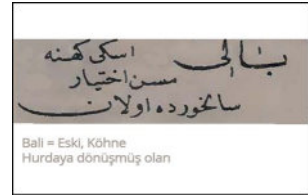 بَالِى اسكى كهنه
مسن اختيار
سالخورده اولان
Bali = Eski, Köhne
Hurdaya dönüşmüş olan